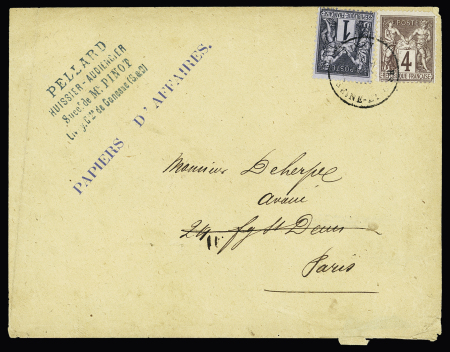 PELLARD
HUISSIER-AUDIENCIER
Succr de Me PINOT
de Gonesse (S&O)
PAPIERS D'AFFAIRES.
1
POSTE
4
REPUBLIQUE FRANCAISE
SEINE-ET-
Monsieur Deherpe
avoué
24 fg St Denis
Paris